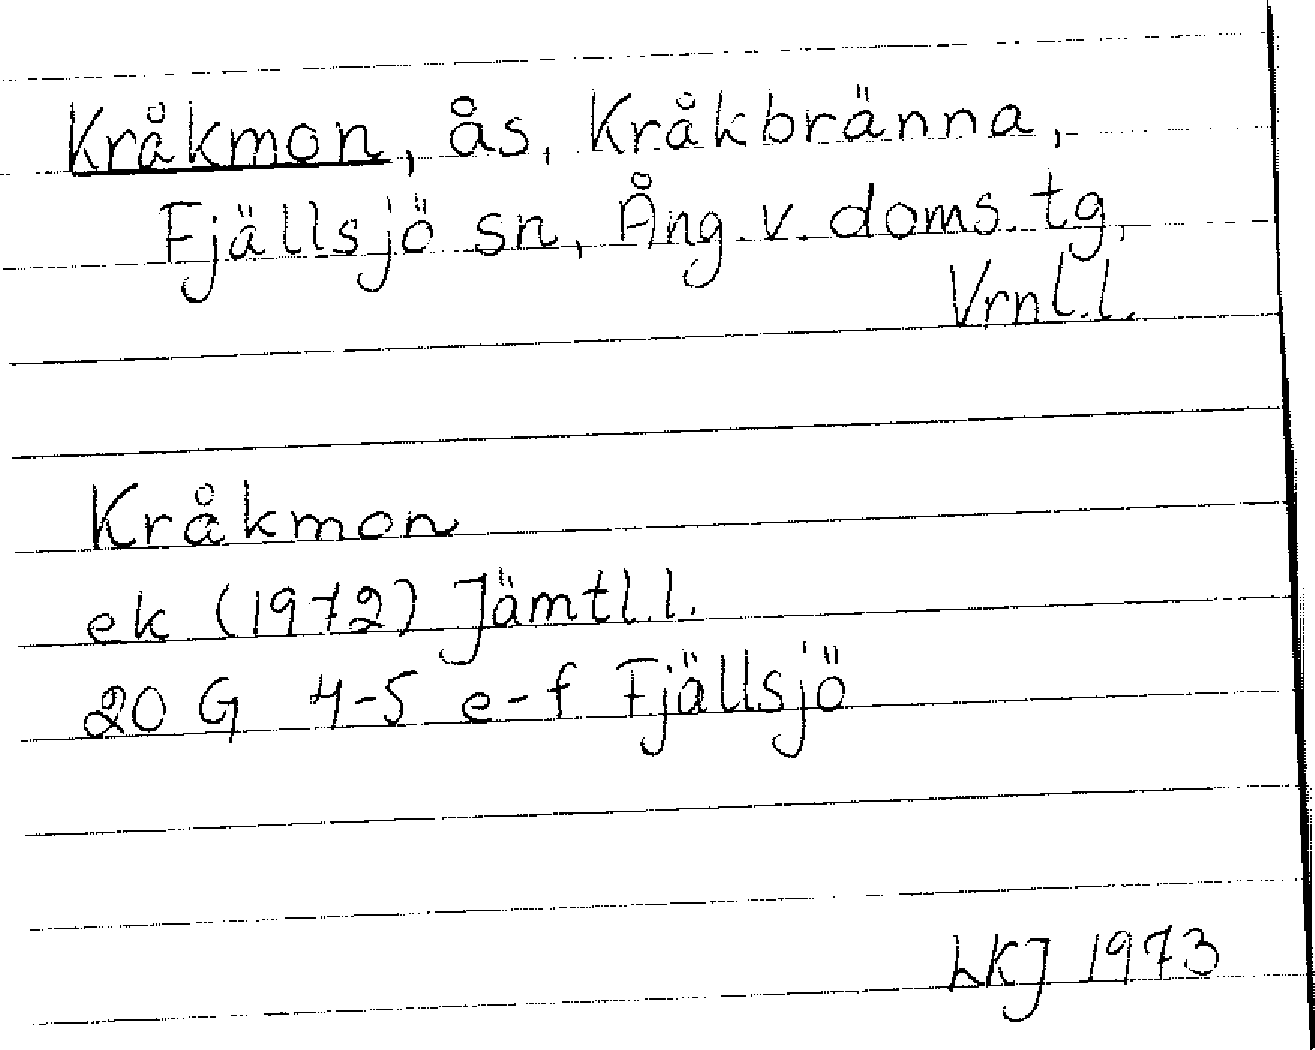 Kråkmon, ås, Kråkbränna,
Fjällsjö sn, Ång. v. doms. tg,
Vrnl. l.
Kråkmon
ek (1972) Jämtl. l.
20 G 4-5 e-f Fjällsjö
LKJ 1973